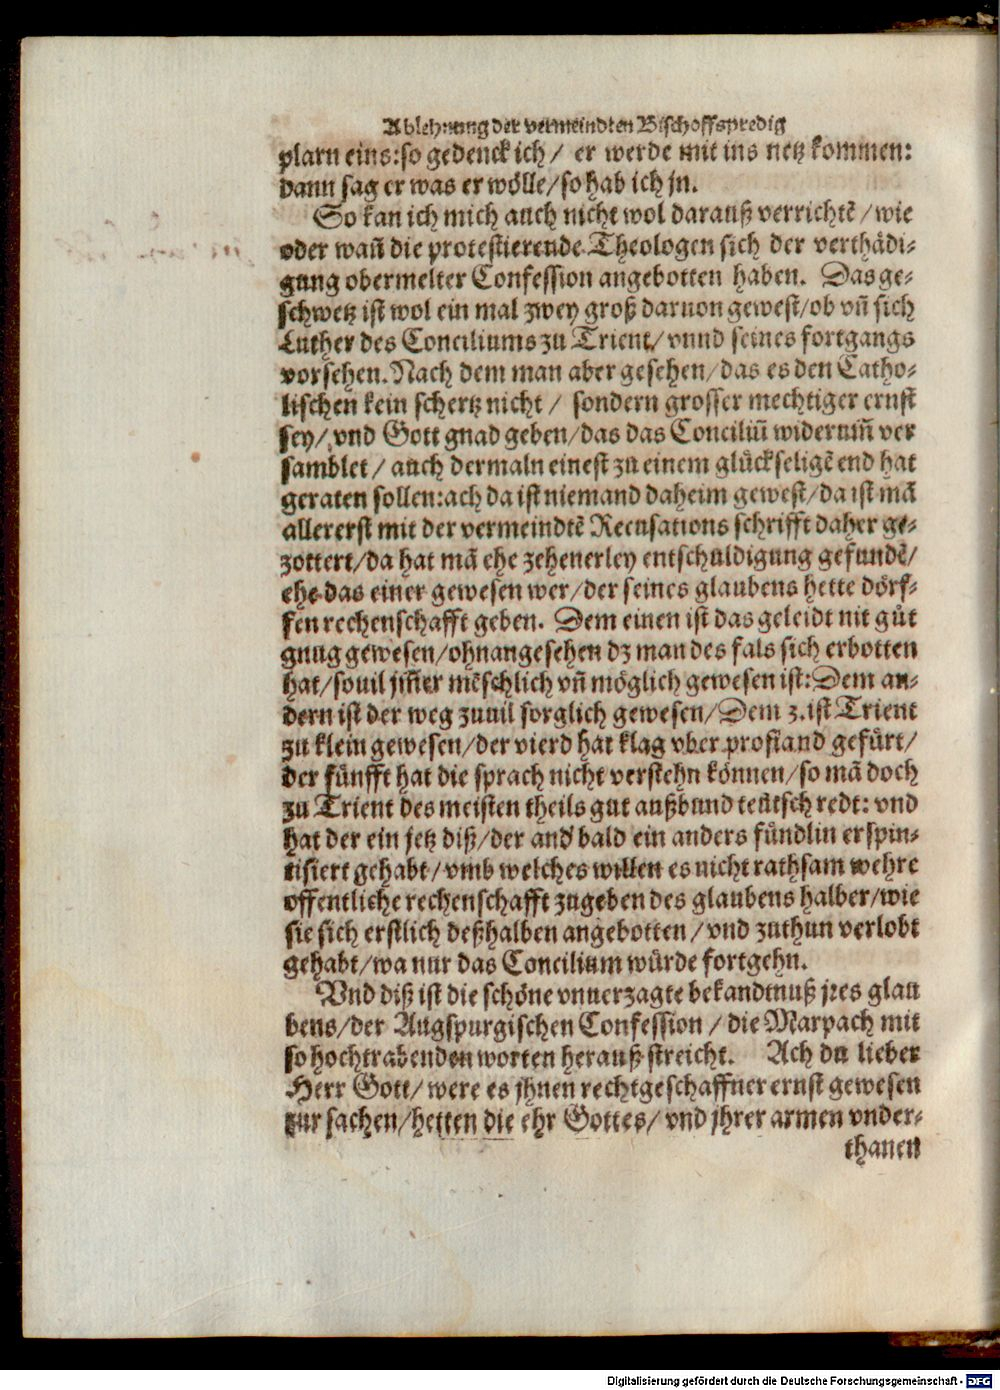 Ablehnung der vermeindten Bischoffspredig
plarn eins: so gedenck ich / er werde mit ins netz kommen:
dann sag er was er wölle / so hab ich jn.
So kan ich mich auch nicht wol darauß verrichtẽ / wie
oder wañ die protestierende Theologen sich der verthädi-
gung obermelter Confession angebotten haben. Das ge-
schwetz ist wol ein mal zwey groß daruon gewest / ob vñ sich
Luther des Conciliums zu Trient / vnnd seines fortgangs
vorsehen. Nach dem man aber gesehen / das es den Catho-
lischen kein schertz nicht / sondern grosser mechtiger ernst
sey / vnd Gott gnad geben / das das Conciliũ widerum̃ ver
samblet / auch dermaln einest zu einem glückseligẽ end hat
geraten sollen: ach da ist niemand daheim gewest / da ist mã
allererst mit der vermeindtẽ Recusations schrifft daher ge-
zottert / da hat mã ehe zehenerley entschuldigung gefundẽ /
ehe das einer gewesen wer / der seines glaubens hette dörf-
fen rechenschafft geben. Dem einen ist das geleidt nit gůt
gnug gewesen / ohnangesehen dz man des fals sich erbotten
hat / souil jm̃er mẽschlich vñ möglich gewesen ist: Dem an-
dern ist der weg zuuil sorglich gewesen / Dem 3. ist Trient
zu klein gewesen / der vierd hat klag vber profiand gefürt /
der fünfft hat die sprach nicht verstehn können / so mã doch
zu Trient des meisten theils gut außbund teütsch redt: vnd
hat der ein jetz diß / der and' bald ein anders fündlin erspin-
tisiert gehabt / vmb welches willen es nicht rathsam wehre
offentliche rechenschafft zugeben des glaubens halber / wie
sie sich erstlich deßhalben angebotten / vnd zuthun verlobt
gehabt / wa nur das Concilium würde fortgehn.
Vnd diß ist die schöne vnuerzagte bekandtnuß jres glau
bens / der Augspurgischen Confession / die Marpach mit
so hochtrabenden worten herauß streicht. Ach du lieber
Herr Gott / were es jhnen rechtgeschaffner ernst gewesen
zur sachen / hetten die ehr Gottes / vnd jhrer armen vnder-
thanen
Digitalisierung gefördert durch die Deutsche Forschungsgemeinschaft - DFG